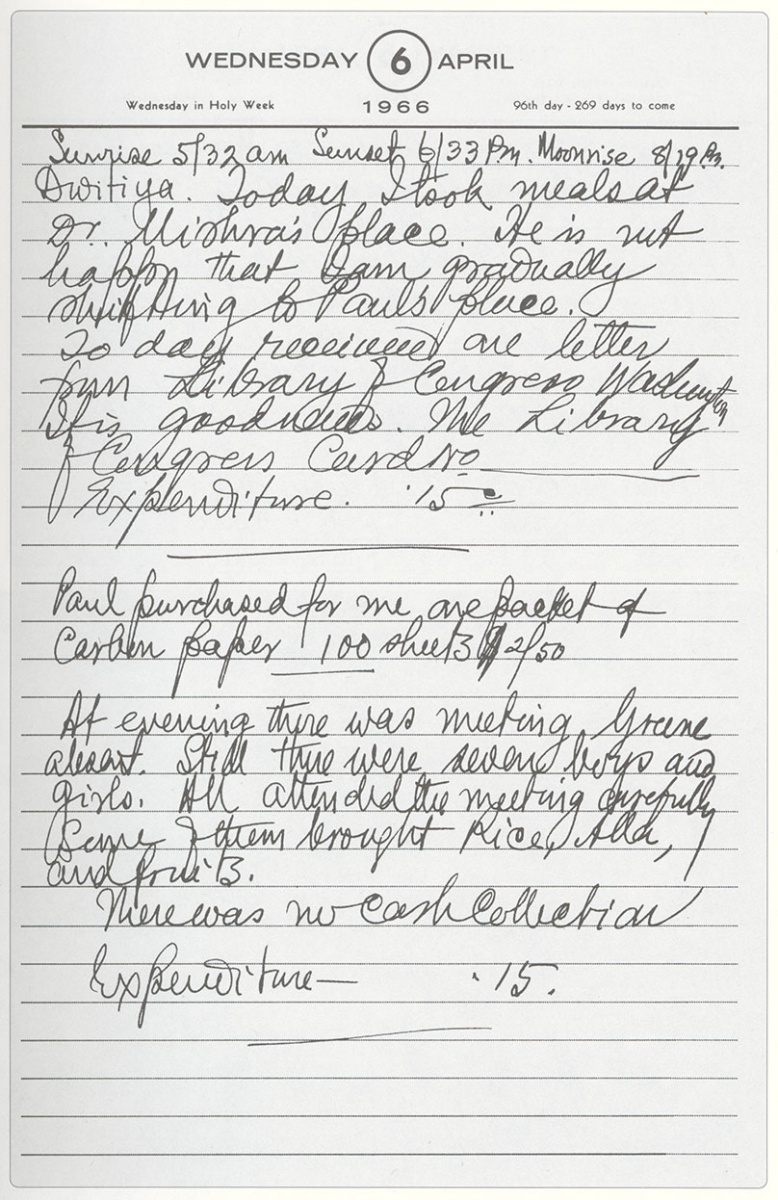 WEDNESDAY 6 APRIL
Wednesday in Holy Week 1966 96th day - 269 days to come
Sunrise 5/32 am Sunset 6/33 P.m. Moonrise 8/19 P.m.
Dwitiya. Today I took meals at
Dr. Mishra's place. He is not
happy that I am gradually
shifting to Paul's place.
To day received one letter
from Library of Congress Washington
It is good news. The Library
of Congress Card No
Expenditure. .15
Paul purchased for me one packet of
Carbon paper 100 sheets $2/50
At evening there was meeting. Greene
absent. Still there were seven boys and
girls. All attended the meeting carefully
Some of them brought Rice, Atta,
and fruits.
There was no cash Collection
Expenditure— .15.